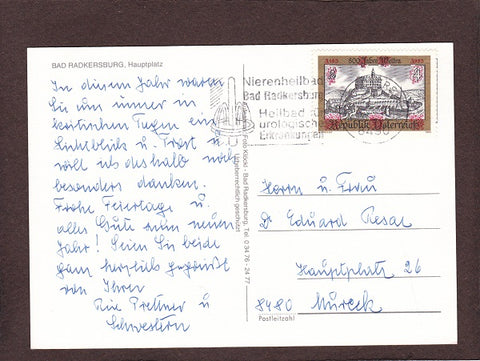 BAD RADKERSBURG, Hauptplatz
In diesem Jahr waren
Sie uns immer in
kritischen Tagen ein
Lichtblick u. Trost u
will ich deshalb noch
besonders danken.
Frohe Feiertage u.
alles Gute zum neuen
Jahr! Seien Sie beide
ganz herzlich gegrüßt
von Ihrer
Prettner u
Schwestern
Foto Klöckl - Bad Radkersburg, Tel. 0 34 76 - 24 77
Urheberrechtlich geschützt
Nierenheilbad
Bad Radkersburg
Heilbad für
urologische
Erkrankungen
1183 800 Jahre Weitra 1983
Republik Österreich
Herrn u. Frau
Dr Eduard Resar
Hauptplatz 26
8480 Mureck
Postleitzahl